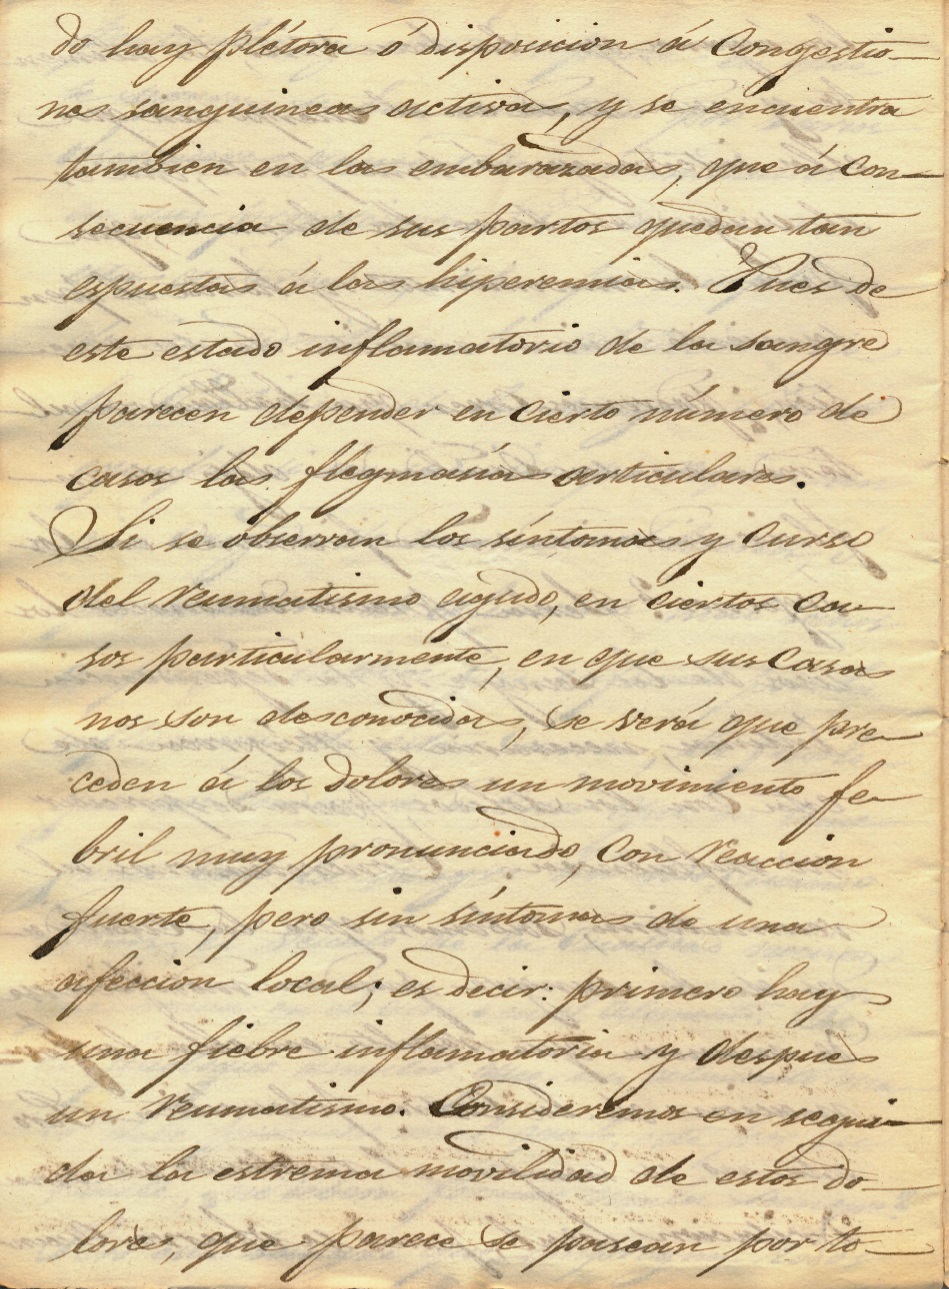 do hay plétora ó disposicion á congestio-
nes sanguineas activas, y se encuentra
tambien en las embarazadas, que á con-
secuencia de sus partos quedan tan
espuestas á las hiperemias. Pues de
este estado inflamatorio de la sangre
parecen depender en cierto número de
casos las flegmasías articulares.
Si se observan los síntomas y curso
del reumatismo agudo, en ciertos ca-
sos particularmente, en que sus casas
nos son desconocidas, se verá que pre-
ceden á los dolores un movimiento fe-
bril muy pronunciado, con reaccion
fuerte, pero sin síntomas de una
afeccion local; es decir: primero hay
una fiebre inflamatoria y despues
un reumatismo. Consideremos en segui-
da la estrema movilidad de estos do-
lores, que parece se pasean por to-